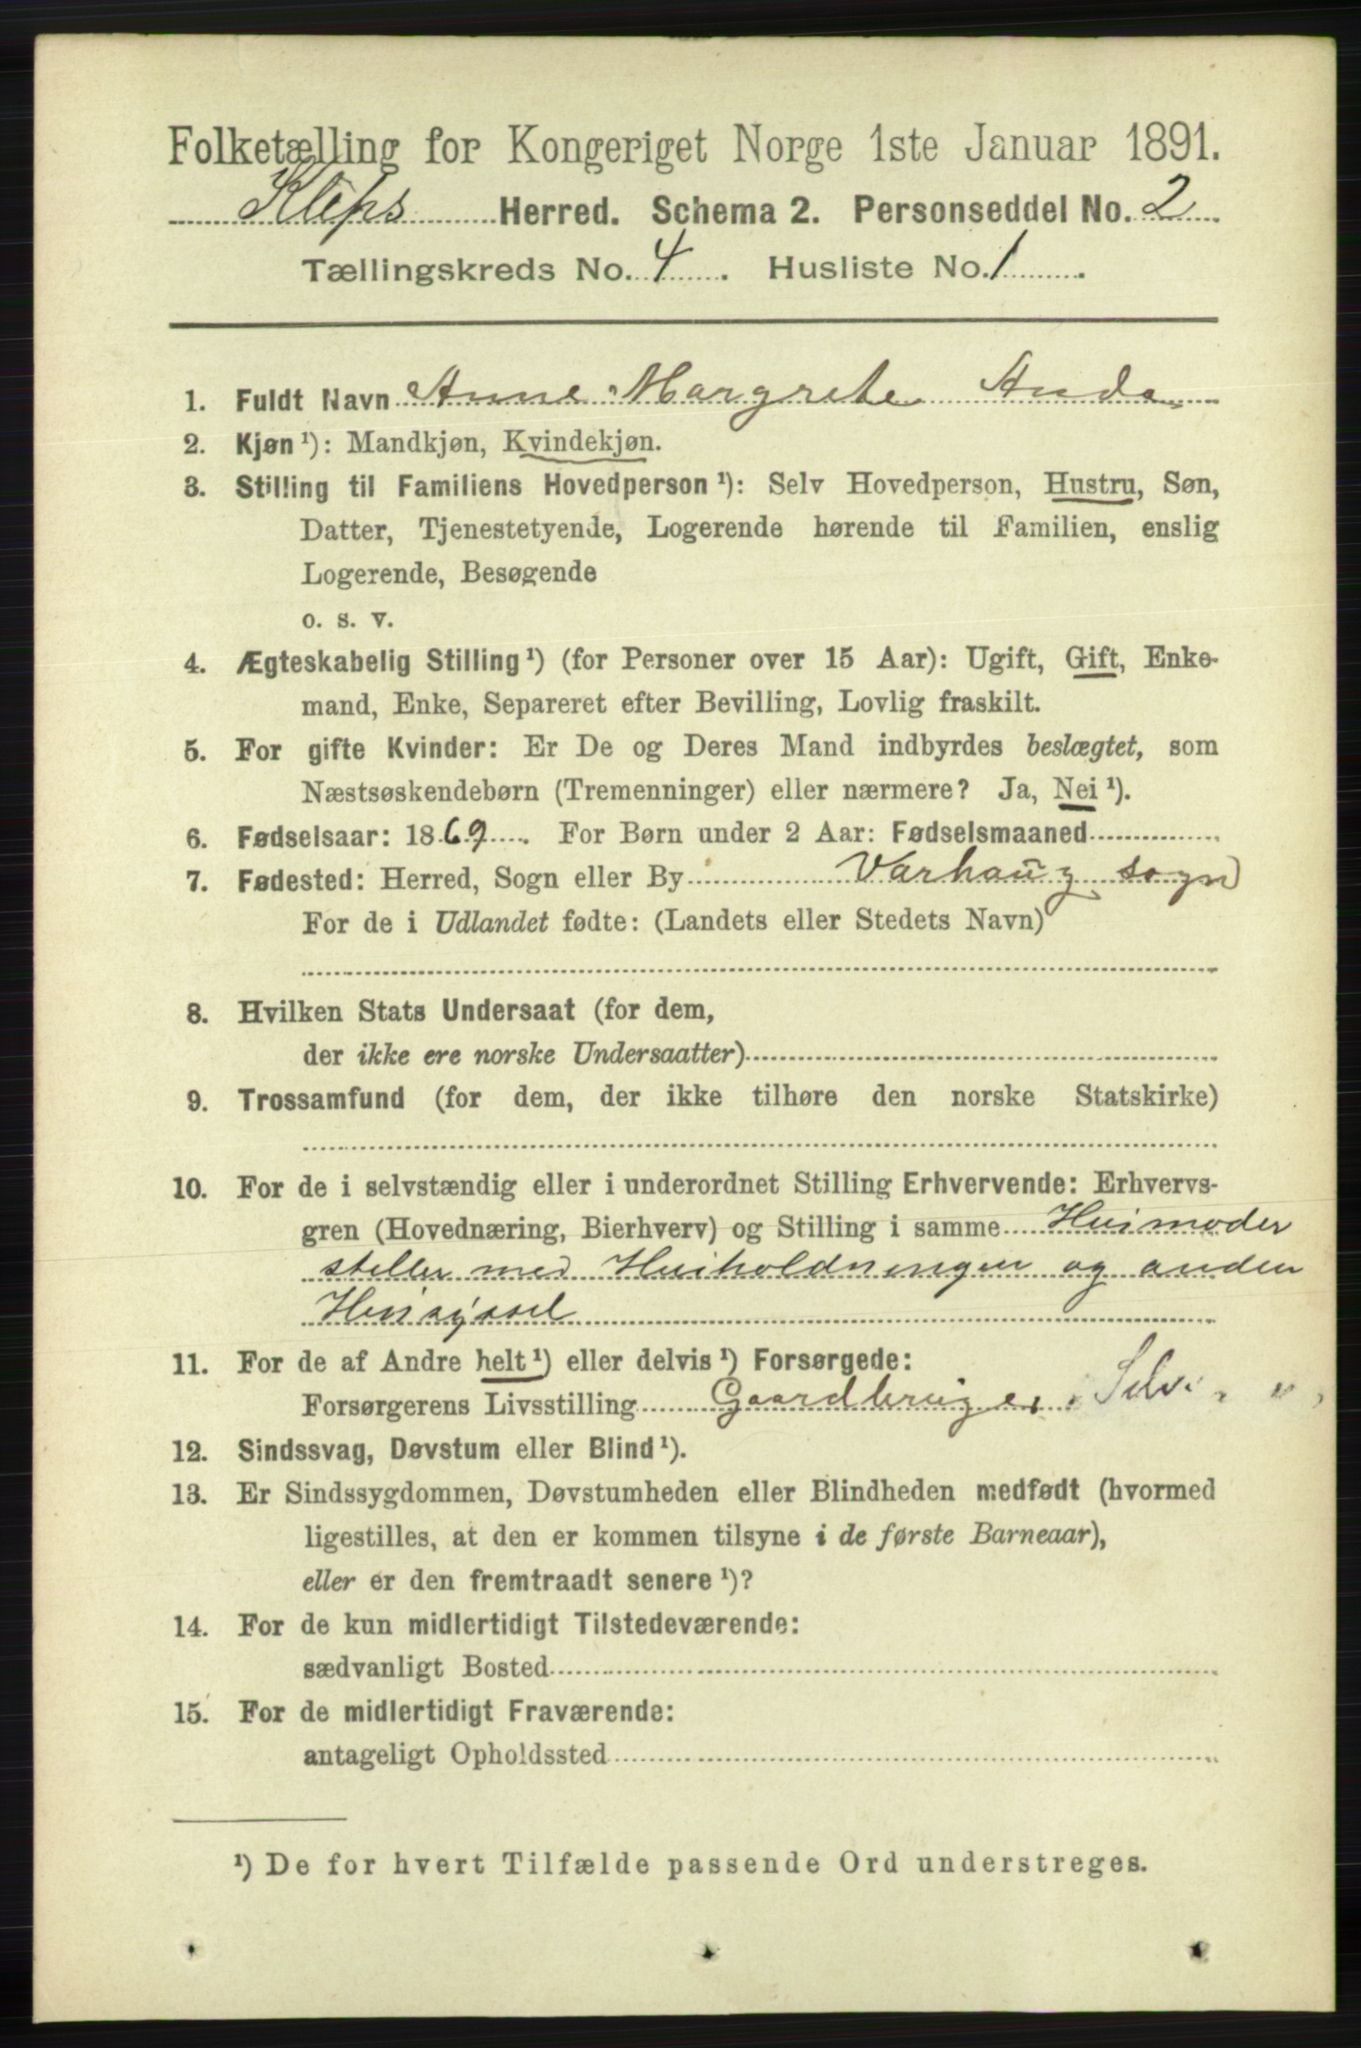 Folketælling for Kongeriget Norge 1ste Januar 1891.
Kleps Herred. Schema 2. Personseddel No. 2
Tællingskreds No. 4. Husliste No. 1.
1. Fuldt Navn Anne Margrete Anda
2. Kjøn¹): Mandkjøn, Kvindekjøn.
3. Stilling til Familiens Hovedperson¹): Selv Hovedperson, Hustru, Søn,
Datter, Tjenestetyende, Logerende hørende til Familien, enslig
Logerende, Besøgende
o. s. v.
4. Ægteskabelig Stilling¹) (for Personer over 15 Aar): Ugift, Gift, Enke-
mand, Enke, Separeret efter Bevilling, Lovlig fraskilt.
5. For gifte Kvinder: Er De og Deres Mand indbyrdes beslægtet, som
Næstsøskendebørn (Tremenninger) eller nærmere? Ja, Nei¹).
6. Fødselsaar: 1869. For Børn under 2 Aar: Fødselsmaaned
7. Fødested: Herred, Sogn eller By Varhaug sogn
For de i Udlandet fødte: (Landets eller Stedets Navn)
8. Hvilken Stats Undersaat (for dem,
der ikke ere norske Undersaatter)
9. Trossamfund (for dem, der ikke tilhøre den norske Statskirke)
10. For de i selvstændig eller i underordnet Stilling Erhvervende: Erhvervs-
gren (Hovednæring, Bierhverv) og Stilling i samme Husmoder
steller med Husholdningen og anden
Hussyssel
11. For de af Andre helt¹) eller delvis¹) Forsørgede:
Forsørgerens Livsstilling Gaardbruger, Selv
12. Sindssvag, Døvstum eller Blind¹).
13. Er Sindssygdommen, Døvstumheden eller Blindheden medfødt (hvormed
ligestilles, at den er kommen tilsyne i de første Barneaar),
eller er den fremtraadt senere¹)?
14. For de kun midlertidigt Tilstedeværende:
sædvanligt Bosted
15. For de midlertidigt Fraværende:
antageligt Opholdssted
¹) De for hvert Tilfælde passende Ord understreges.